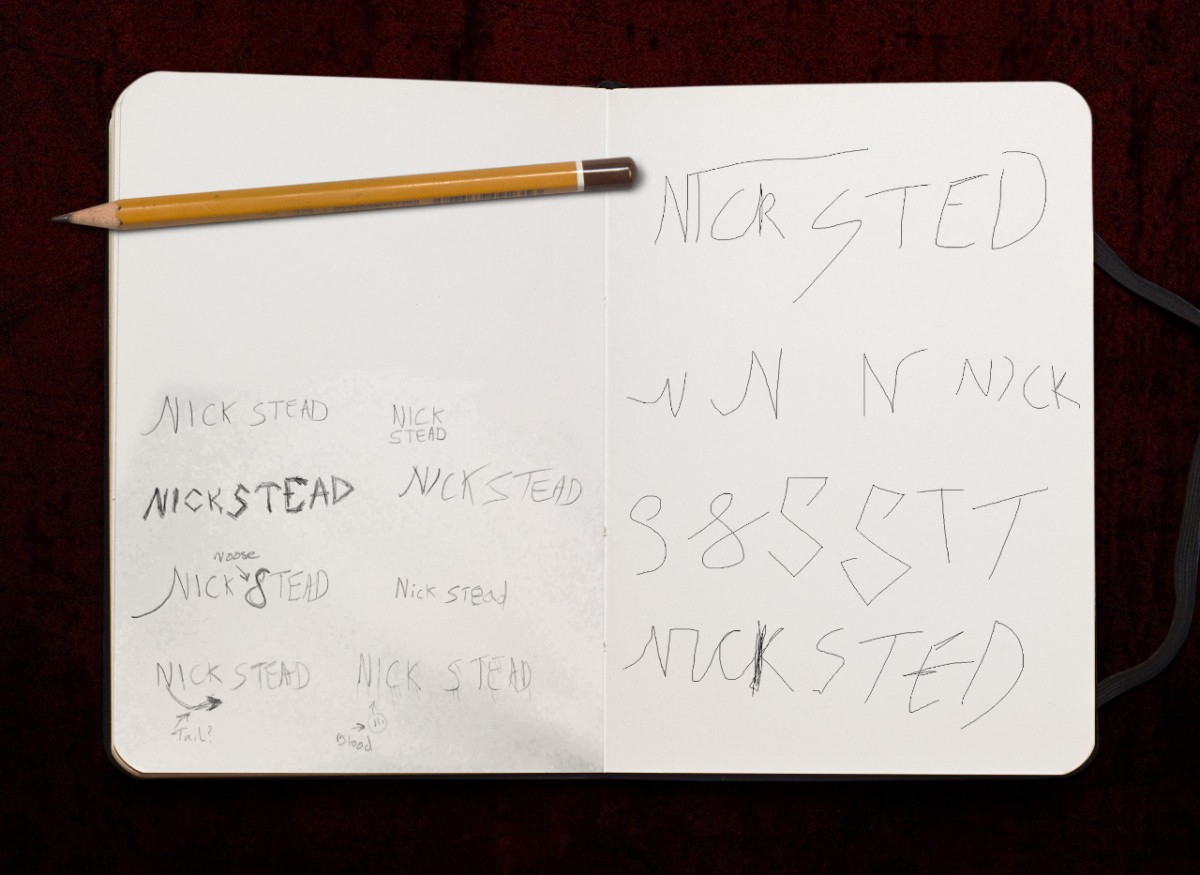 NICK STEAD
NICK
STEAD
NICK STEAD
NICK STEAD
Noose
NICK STEAD
Nick STead
NICK STEAD
Tail?
NICK STEAD
Blood
NICK STED
N N N NICK
S S S S T T
NICK STED